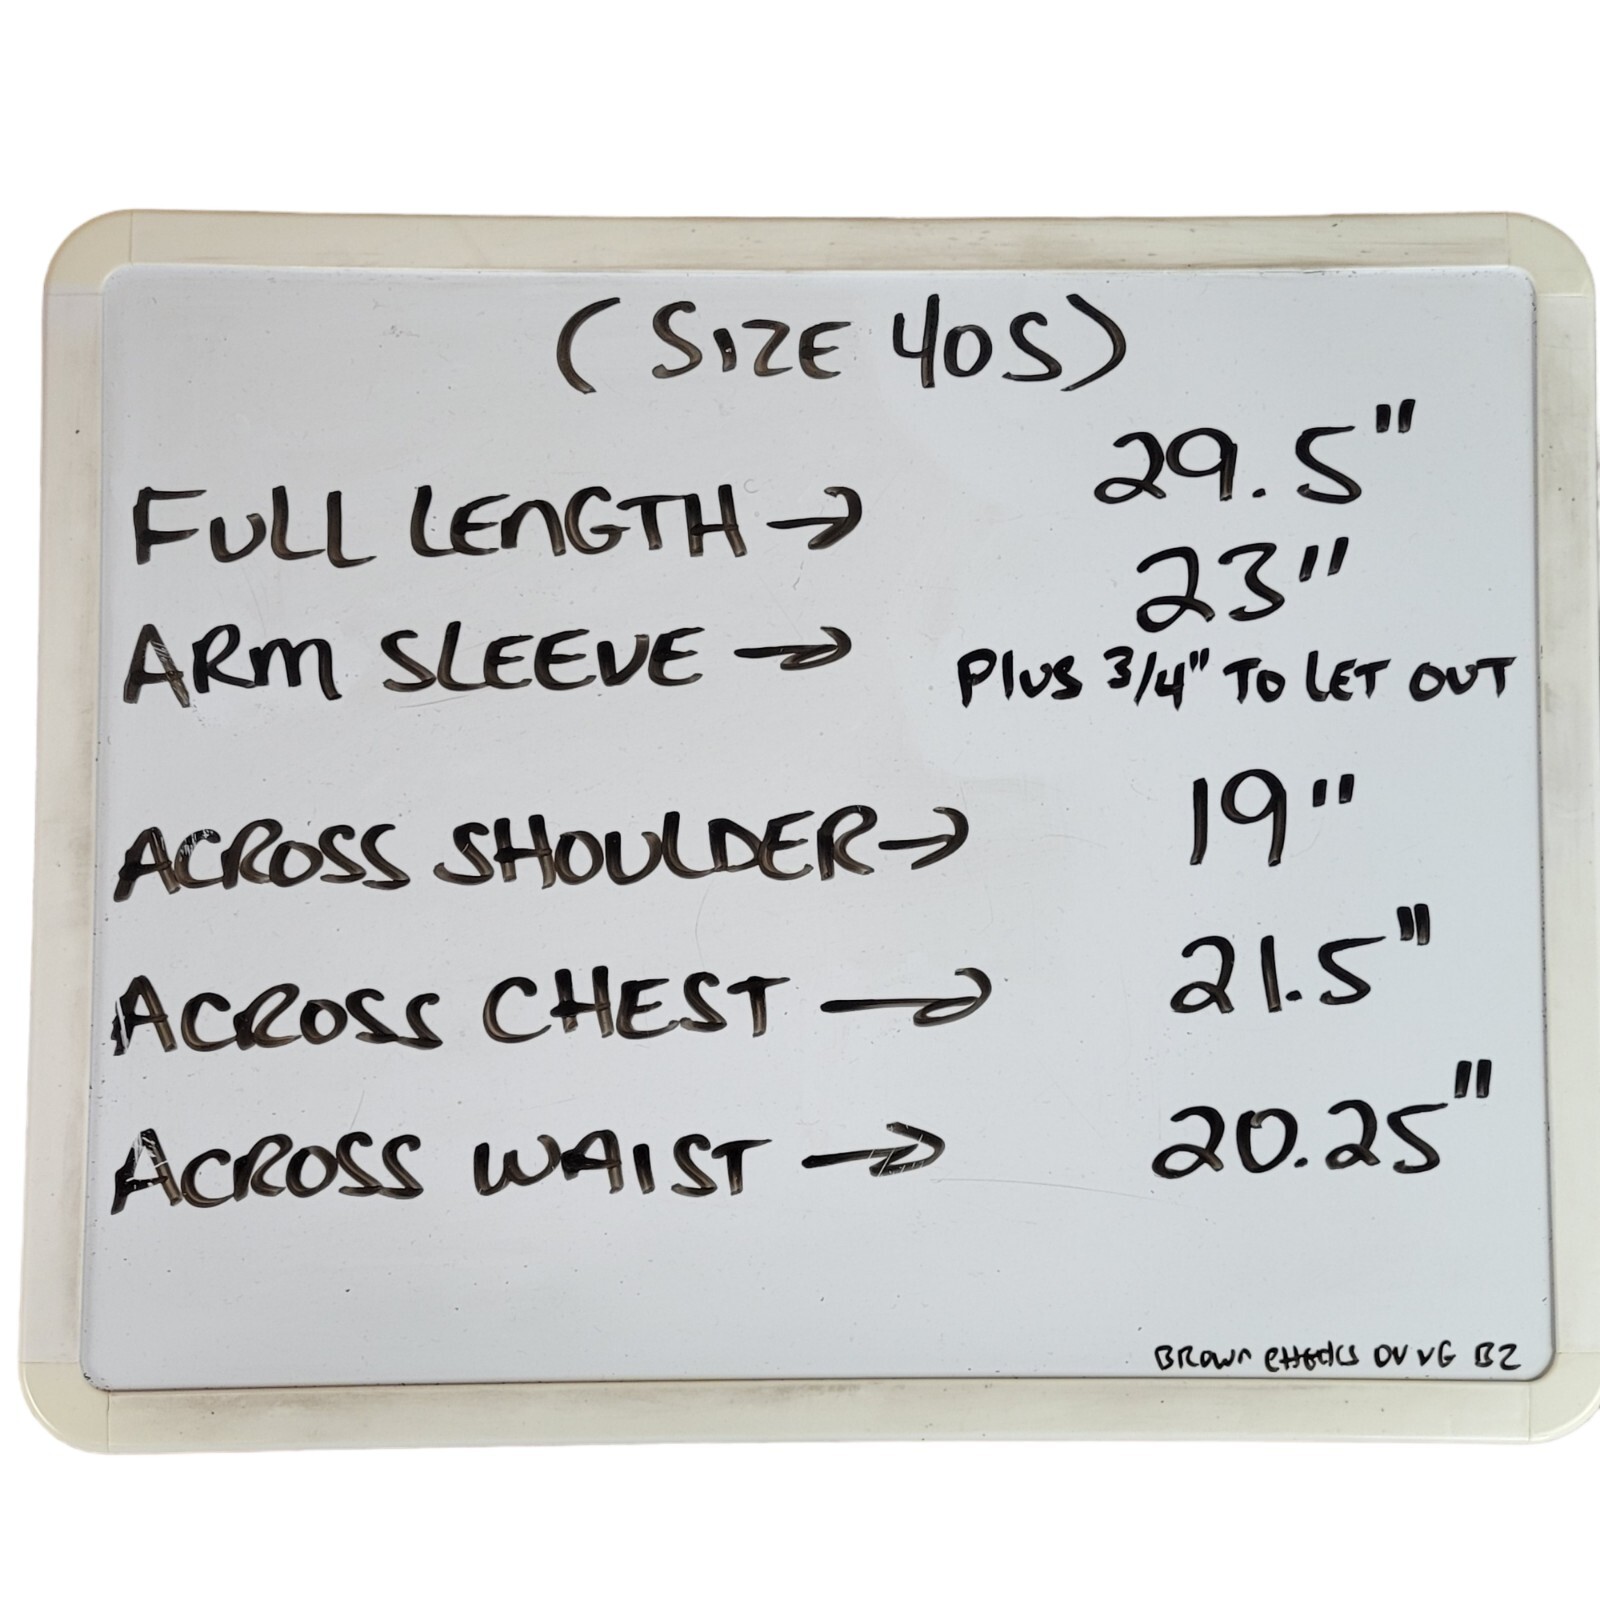 (SIZE 40S)
FULL LENGTH → 29.5"
ARM SLEEVE → 23"
PLUS 3/4" TO LET OUT
ACROSS SHOULDER → 19"
ACROSS CHEST → 21.5"
ACROSS WAIST → 20.25"
BROWN CHECKS OV VG B2